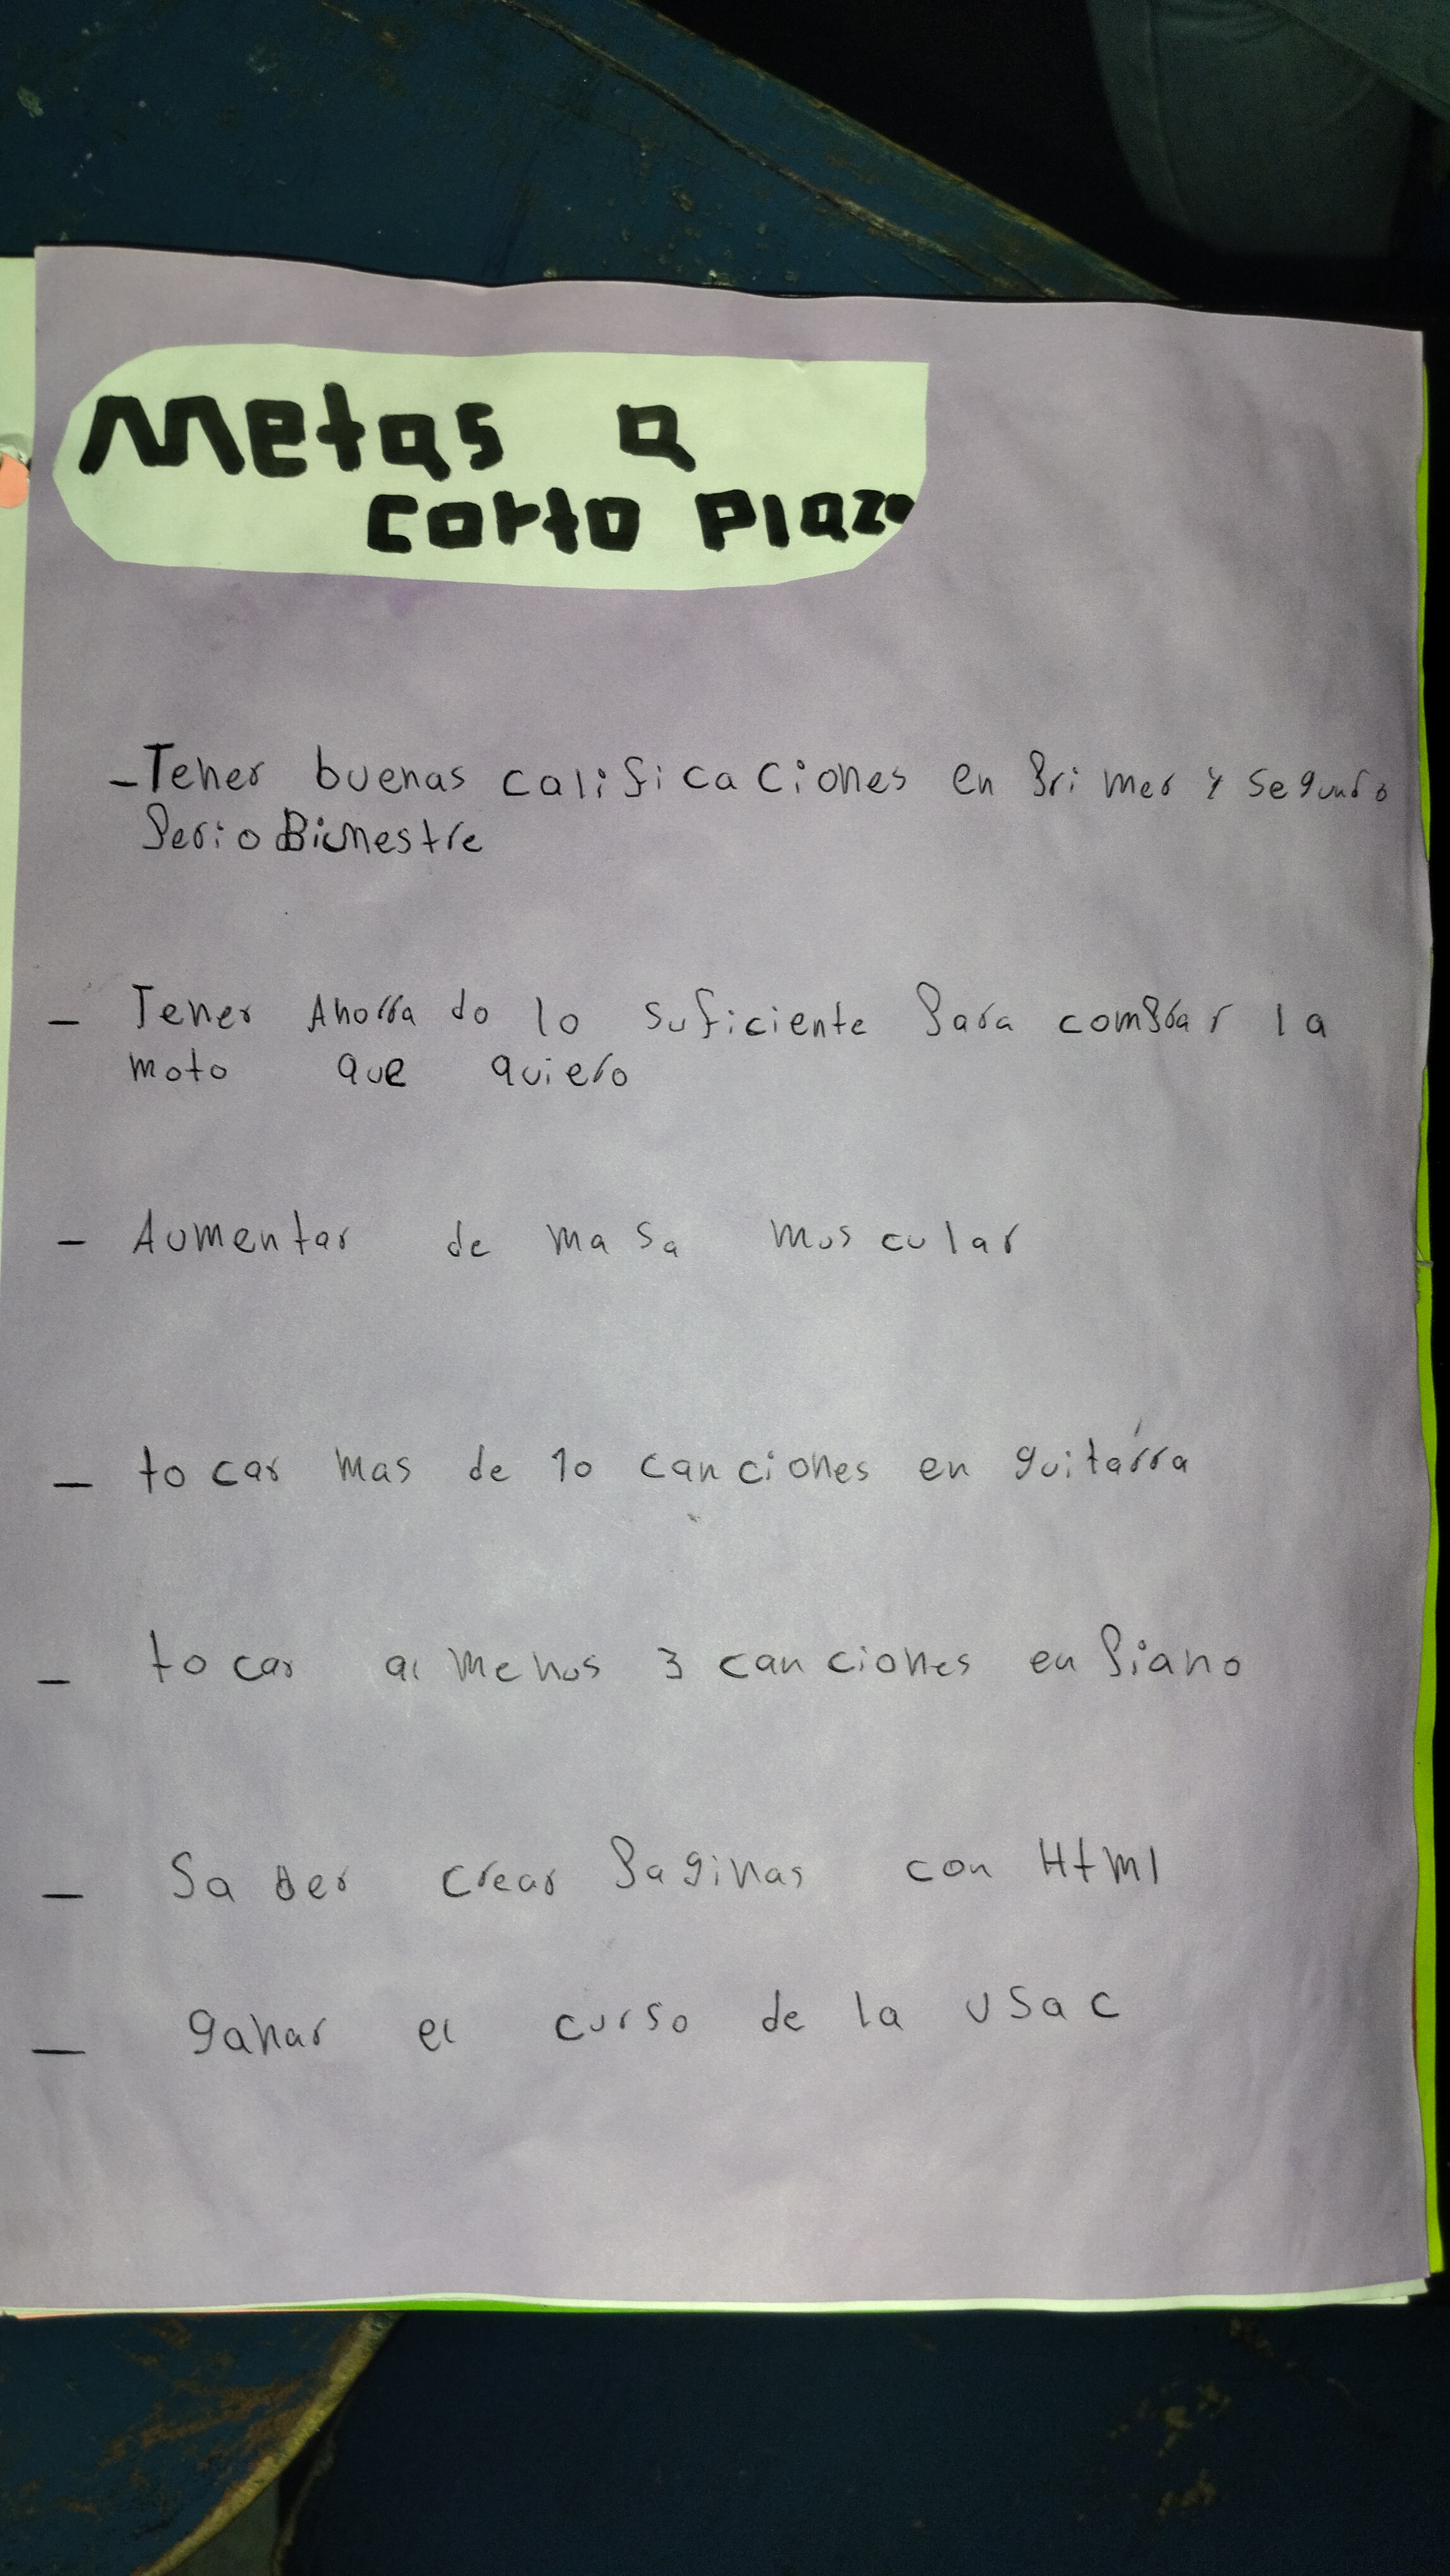 Metas a
corto plazo
- Tener buenas calificaciones en Primer y segundo
Perio Bimestre
- Tener Ahorra do lo suficiente Para comprar la
moto que quiero
- Aumentar de masa muscular
- tocar mas de 10 canciones en guitarra
- tocar al menos 3 canciones en Piano
- Saber crear Paginas con Html
- ganar el curso de la usac